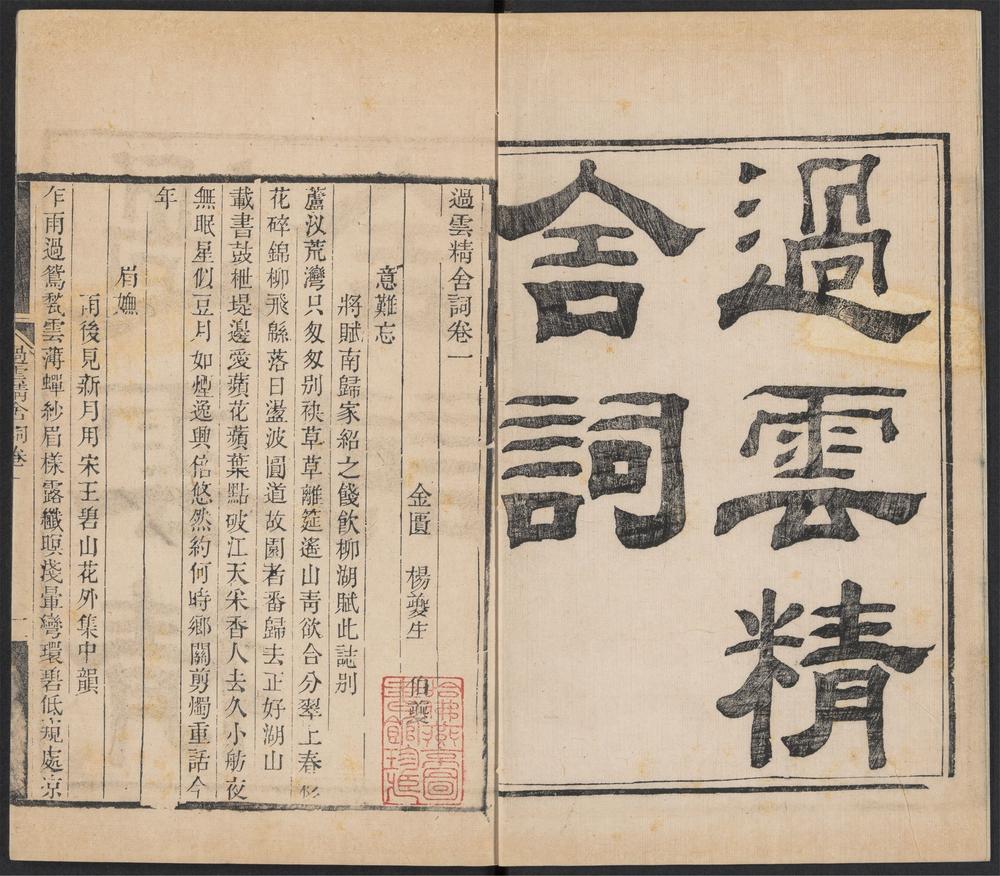 過雲精
舍詞
過雲精舍詞卷一
金匱 楊夔生 伯夔
意難忘
將賦南歸家紹之餞飲柳湖賦此誌別
蘆汊荒灣只匆匆別袂草草離筵遙山青欲合分翠上春
花碎錦柳飛緜落日盪波圓道故園者番歸去正好湖山
載書鼓枻堤邊愛蘋花蘋葉點破江天采香人去久小舫夜
無眠星似豆月如煙逸興倍悠然約何時鄉關剪燭重話今
年
眉嫵
雨後見新月用宋王碧山花外集中韻
乍雨過鴛甃雲薄蟬紗眉樣露纖暝淺暈彎環碧低窺處涼
過雲精舍詞卷一
一
哈佛燕京圖
書館珍藏